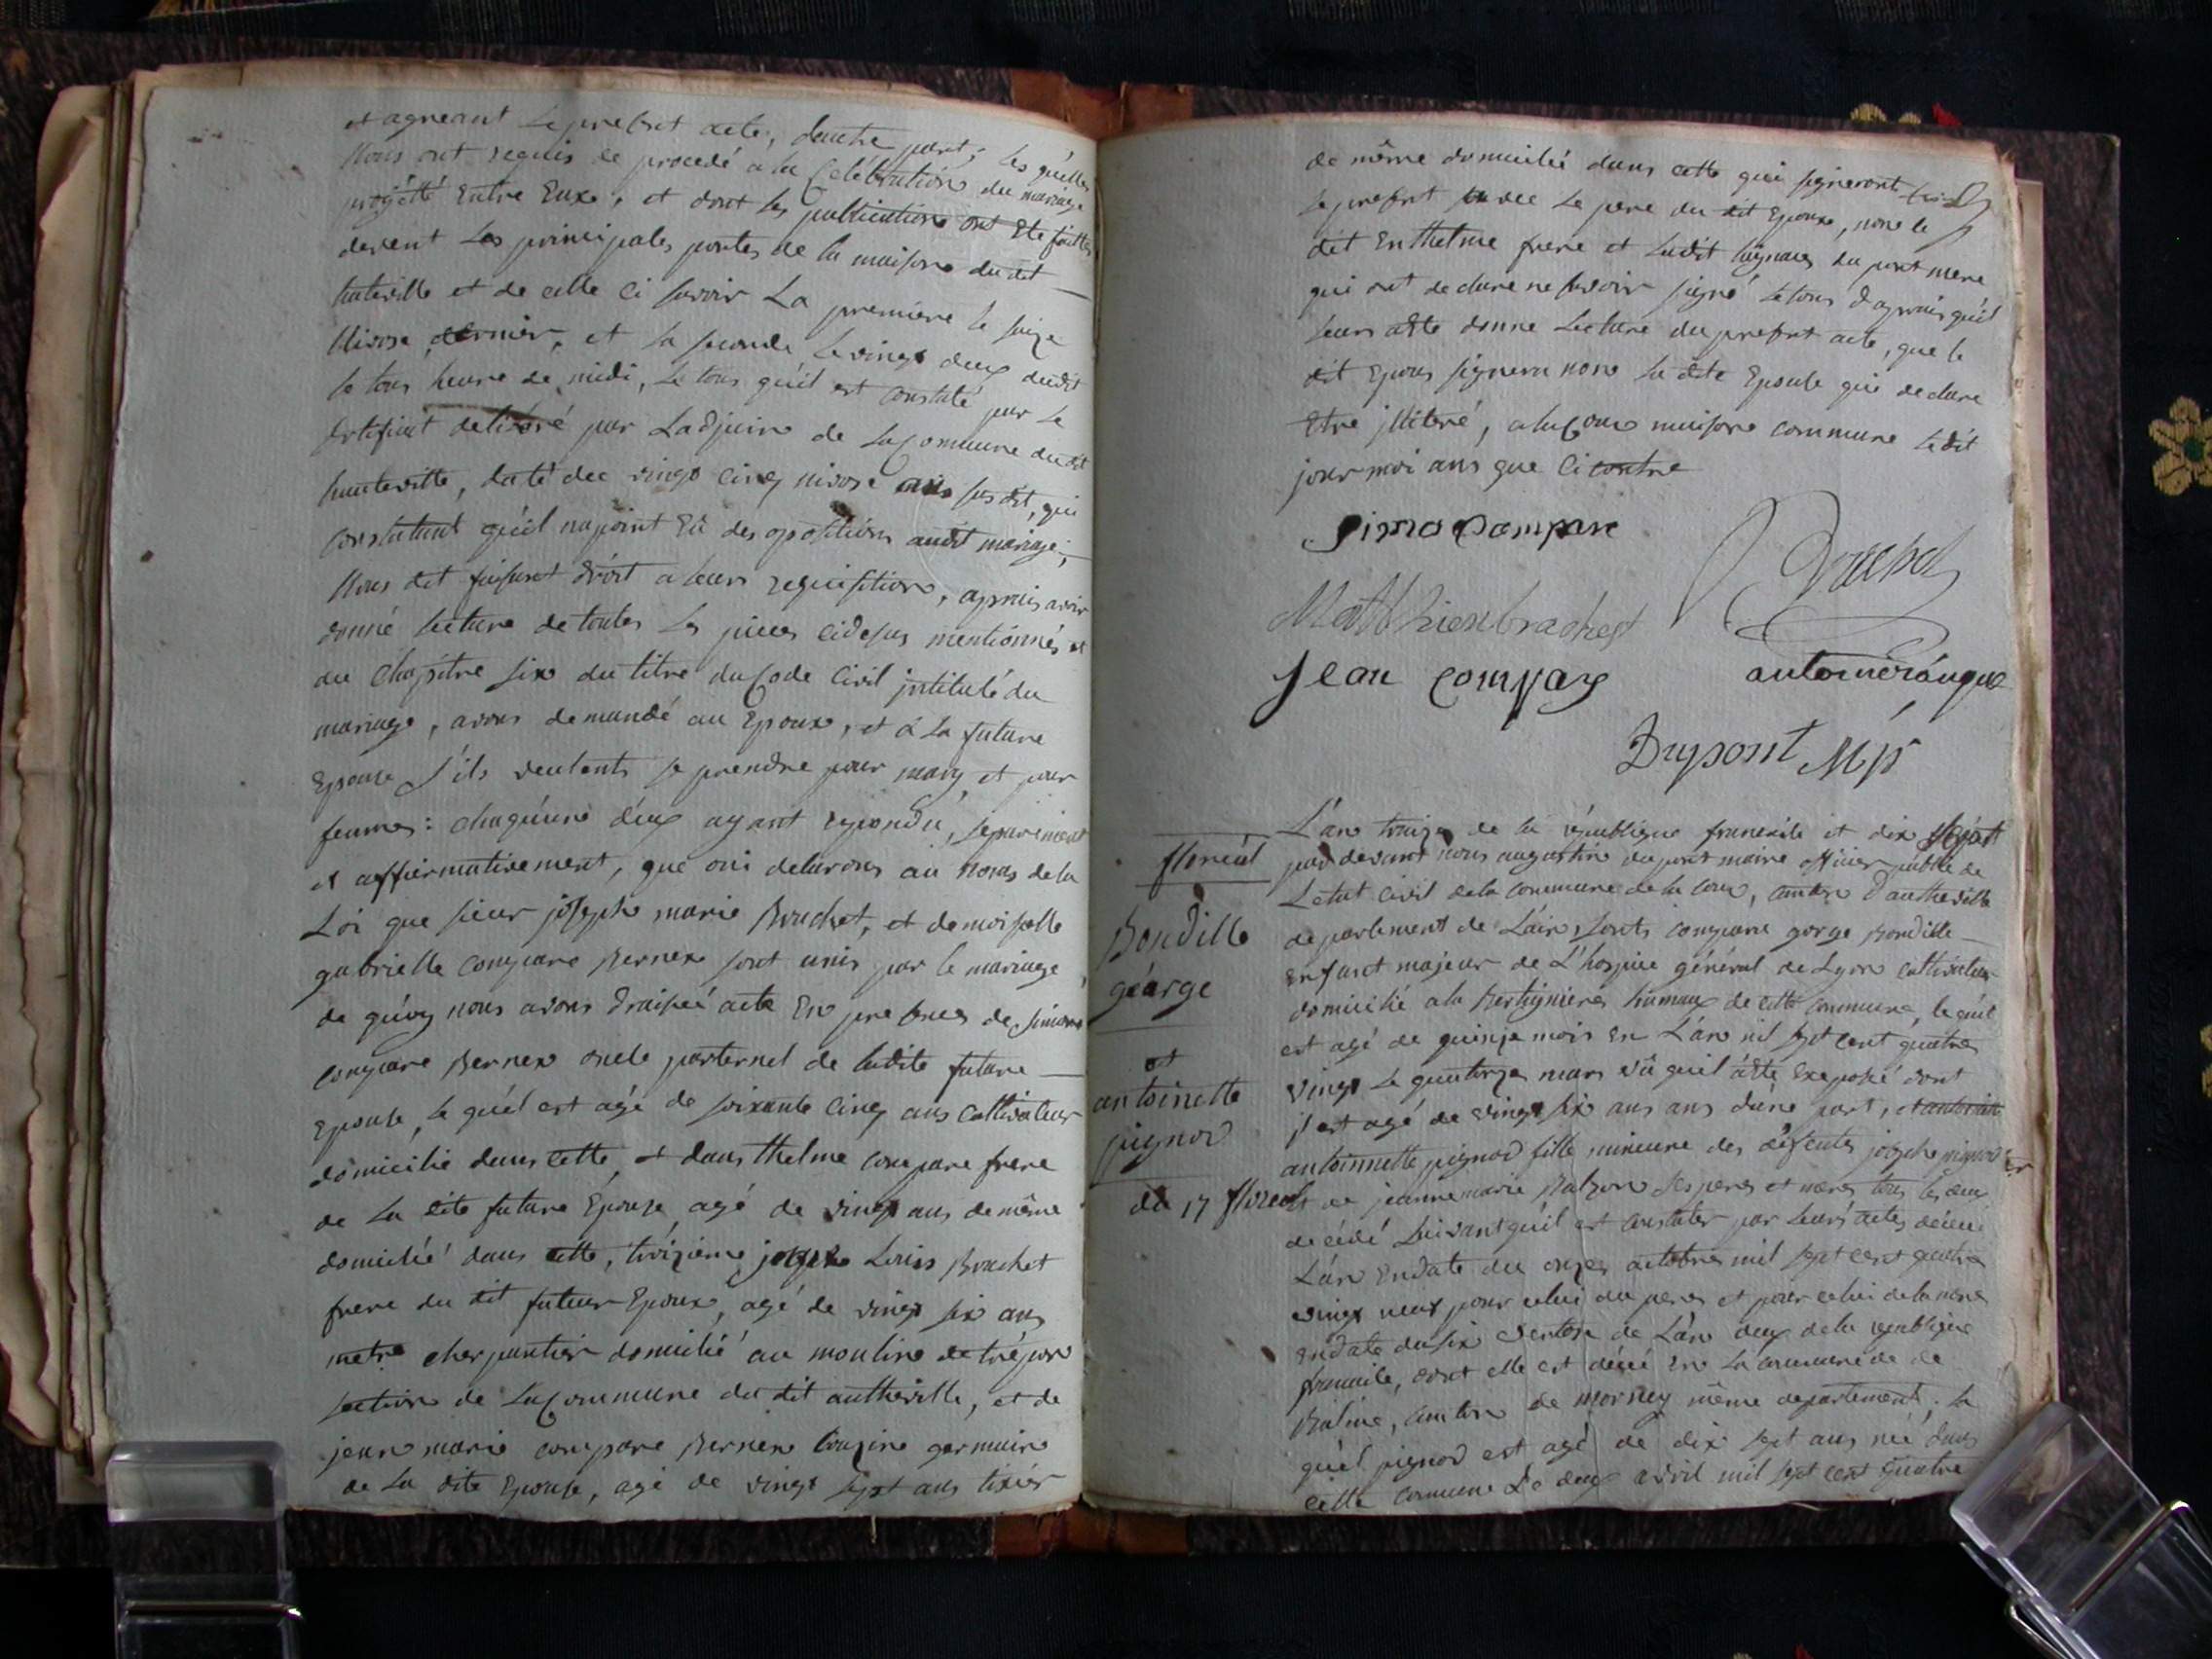 et agreant le present acte, dautre part; les quelles
Nous ont requis de procedé a la Celébration du mariage
projetté Entre Eux, et dont les publications ont Ete faittes
devent Les principales portes de la maison du dit
hauteville et de celle ci savoir La premiere le seize
Nivose dernier, et la seconde le vingt deux dudit
le tous heure de midi, le tous qu'il est constaté par le
Certificat delibvré par Ladjoin de la Commune du dit
hauteville, daté dee vingt cinq nivose ans sus dit, qui
constatant qu'il na point Eû des opositions audit mariage;
Nous dit faisant droit a leurs requisition, aprais avoir
donné lecture de toutes les pieces cidesus mentionnés et
au Chapitre six du titre du Code Civil jntitulé du
mariage, avons demandé au Epoux, et à la future
Epouse s'ils veulents se prendre pour mary et pour
femmes: chaquune d'eux ayant repondu, séparément
et affirmativement, que oui declarons au noms de la
Loi que sieur joseph marie Brachet, et demoiselle
gabrielle compare Bernex sont unis par le mariage
de quoy nous avons draissé acte En presences de simond
compare Bernex oncle parternel de ladite future
Epouse, le quel est agé de soixante cinq ans cultivateur
domicilié dans cette, et dans thelme compare frere
de La dite future Epouse, agé de vingt ans de même
domicilié dans cette, troizieme joseph Louis Brachet
frere du dit futeur Epoux, agé de vingt six ans
metre cherpantier domicilié au moulins de trépon
section de La Commune du dit autheville, et de
jean marie compare Bernex Couzine germain
de La dite Epouse, agé de vingt sept ans tixier
de même domicilié dans cette qui signeront
le present avec le pere du dit Epoux, non le
dit Enthelme frere et ladit mere
qui ont declaré ne savoir signé le tous d'aprais qu'il
leurs atte donne Lecture du present acte, que le
dit Epous signera non la dite Epouse qui declare
Etre jlliteré, a la Coux maisons commune Ledit
jour moi ans que Ci contre
Simon Compare
Brachet
Matthieu brachet
Jean Compare
Dupont Mre
L'ans traize de la république francaise et dix sept
floréal
par devant nous augustin dupont maire officier public de
Letat civil de la commune de la Coux, canton d'autheville
departement de L'ain, sonts compare gorge Bondille
Bondille
géorge
Enfant majeur de L'hospice général de Lyon cultivateur
domicilié a la Bertignieres hamaux de cette commune, le quel
est agé de quinze mois En L'an mil sept cent quatre
et
vingt le quatorze mars vû qu'il atte Exeposé dont
antoinette
jl est agé de vingt six ans ans d'une part, et antoinette
pignod
antoinnette pignod fille mineure des défeuts joseph pignod
du 17 floreal
et de jeanne marie Balzon ses peres et meres tous les deux
decédé suivant qu'il est constater par leurs actes décédé
L'un Endate du onze actobre mil sept cent quatre
vingt neuf pour celui du peres et pour celui de la mere
Endate du six ventose de L'an deux de la republique
francaise, dont elle est décéé En la commune de
Boline, canton de mornay même departement; la
quel pignod est agé de dix sept ans neé dans
cette commune Le deux avril mil sept cent quatre